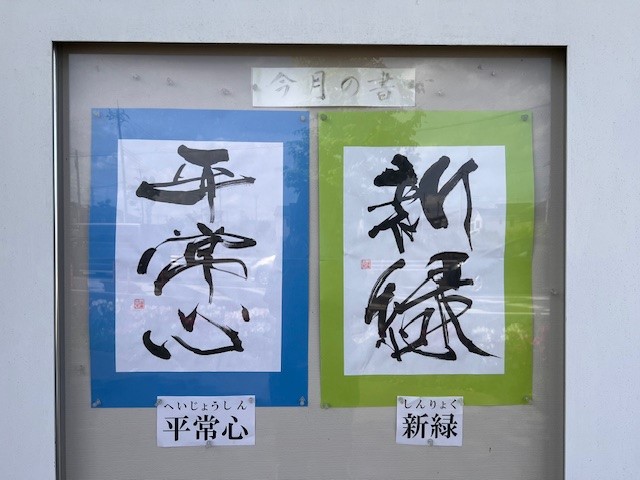 今月の書
平常心
新緑
へいじょうしん
平常心
しんりょく
新緑